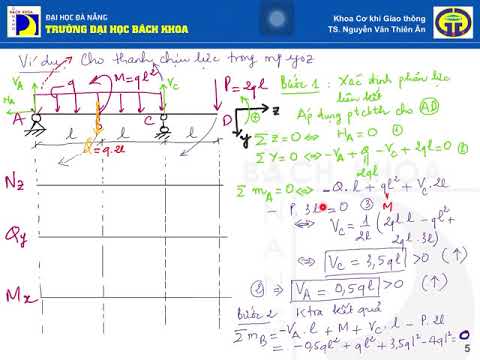 ĐẠI HỌC ĐÀ NẴNG
TRƯỜNG ĐẠI HỌC BÁCH KHOA
Khoa Cơ khí Giao thông
TS. Nguyễn Văn Thiên Ân
Ví dụ: Cho thanh chịu lực trong mp yoz
V_A q M=ql² V_C P=2ql
H_A
A C D z
y
l l l
Q=q.2l
N_z
Q_y
M_x
Bước 1: Xác định phản lực liên kết
Áp dụng ptcbth cho AD
Σ Z=0 ⇔ H_A = 0 ①
Σ Y=0 ⇔ -V_A + Q - V_C + 2ql = 0 ②
2ql
Σ m_A=0 ⇔ -Q.l + ql² + V_C.2l
- P.3l = 0 ③ M
⇔ V_C = 1/2l (2ql.l - ql² +
2ql.3l)
⇔ V_C = 3,5ql >0 (↑)
② ⇒ V_A = 0,5ql >0 (↑)
Bước 2 Ktra kết quả
Σ m_B = -V_A.l + M + V_C.l - P.2l
= -0,5ql² + ql² + 3,5ql² - 4ql² = 0
5